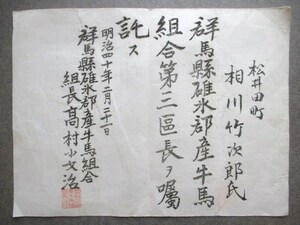 松井田町
相川竹次郎氏
群馬縣碓氷郡産牛馬
組合第三區長ヲ囑
託ス
明治四十年二月二十一日
群馬縣碓氷郡産牛馬組合
組長髙村小文治